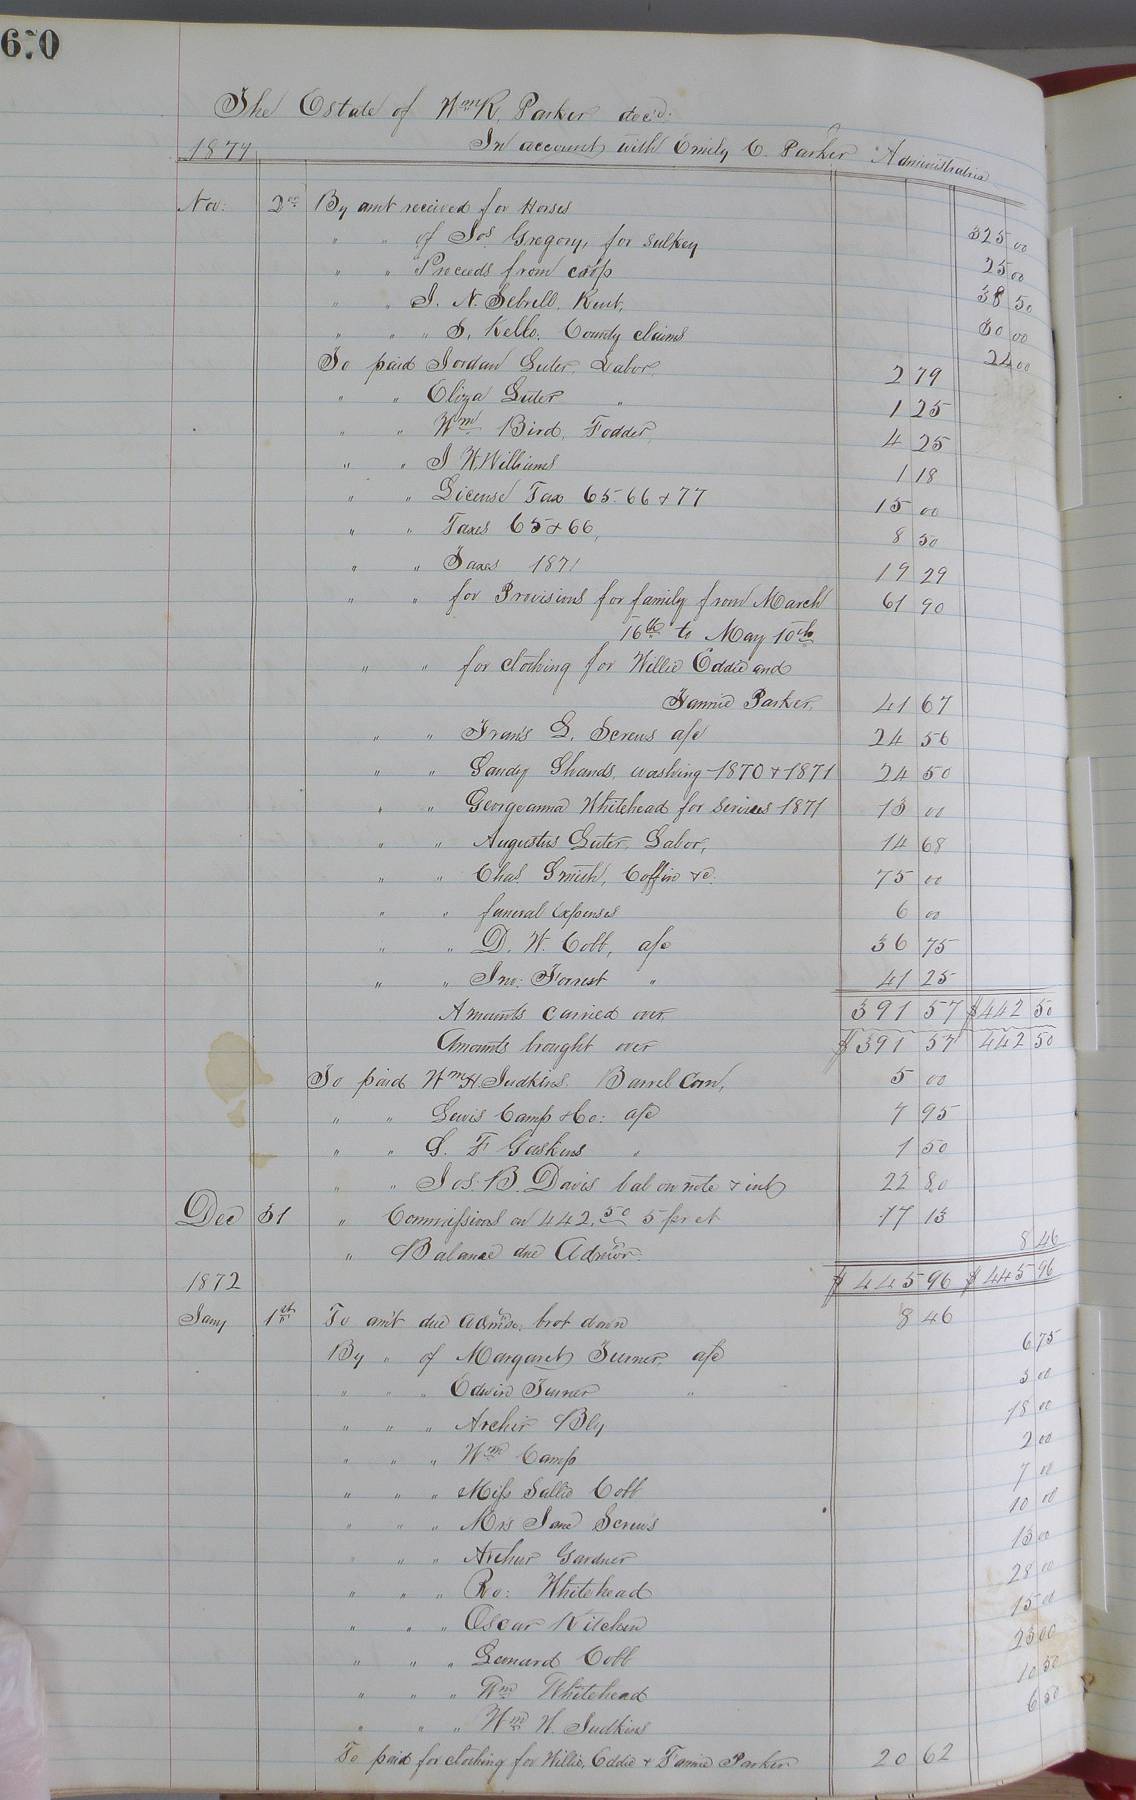 670
The Estate of Wm R. Parker dec'd.
In account with Emily C. Parker Administratrix
1871
Nov: 2nd By amt received for Horses 325 00
" " of Jos Gregory, for sulkey 25 00
" " Proceeds from crop 38 50
" " J. N. Sebrell, Rent, 30 00
" " " S. Kello, County claims 24 00
To paid Jordan Luter, Labor, 2 79
" " Eliza Luter " 1 25
" " Wm Bird, Fodder, 4 25
" " J W Williams 1 18
" " License Tax 65. 66 & 77 15 00
" " Taxes 65 & 66, 8 50
" " Taxes 1871 19 29
" " for Provisions for family from March 61 90
16th to May 10th
" " for clothing for Willie Eddie and
Fannie Parker, 41 67
" " Frans L. Screws a/c 24 56
" " Sandy Shands, washing 1870 & 1871 24 50
" " Georgeanna Whitehead for services 1871 13 00
" " Augustus Luter, Labor, 14 68
" " Chas. Smith, Coffin &c. 75 00
" " funeral Expenses 6 00
" " D. W. Cobb, a/c 36 75
" " Jno: Forrest " 41 25
Amounts carried over, 391 57 $442 50
Amounts brought over $391 57 442 50
To paid Wm H. Judkins, Barrel Corn, 5 00
" " Lewis Camp & Co: a/c 7 95
" " G. F Gaskins " 1 50
" " Jos. B. Davis bal on note & int 22 80
Dec 31 " Commissions on 442.50 5 pr ct 17 13
" Balance due Admor. 8 46
$445 96 $445 96
1872
Jany 1st To am't due admx: brot down 8 46
By " of Margaret Turner, a/c 6 75
" " " Edwin Turner " 3 00
" " " Archer Bly 18 00
" " " Wm Camp 2 00
" " " Miss Sallie Cobb 7 00
" " " Mrs Jane Screws 10 00
" " " Archer Gardner 13 00
" " " Ro: Whitehead 28 00
" " " Oscar Kitchen 15 00
" " " Leonard Cobb 23 00
" " " Wm Whitehead 10 50
" " " Wm H. Judkins 6 50
To paid for clothing for Willie, Eddie & Fannie Parker 20 62